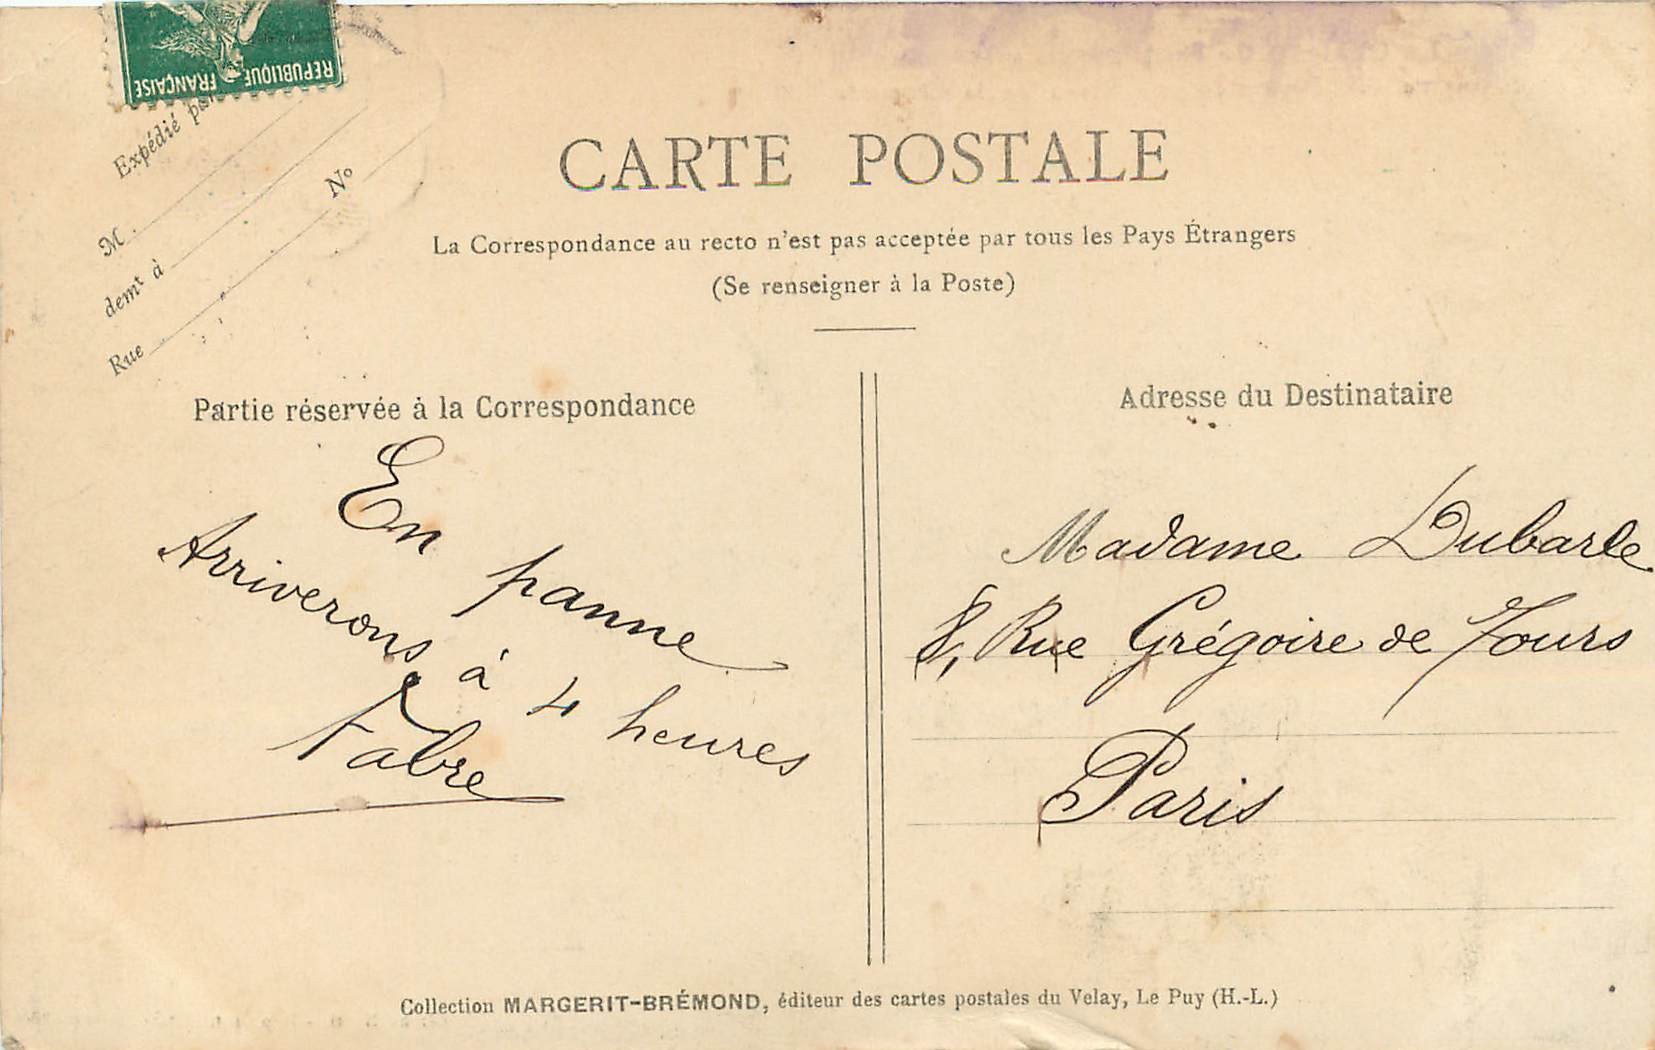 REPUBLIQUE FRANÇAISE
Expédié par
M.
demt à
Rue No
CARTE POSTALE
La Correspondance au recto n'est pas acceptée par tous les Pays Étrangers
(Se renseigner à la Poste)
Partie réservée à la Correspondance
En panne
Arriverons à 4 heures
Fabre
Adresse du Destinataire
Madame Dubarle
8, Rue Grégoire de Tours
Paris
Collection MARGERIT-BRÉMOND, éditeur des cartes postales du Velay, Le Puy (H.-L.)